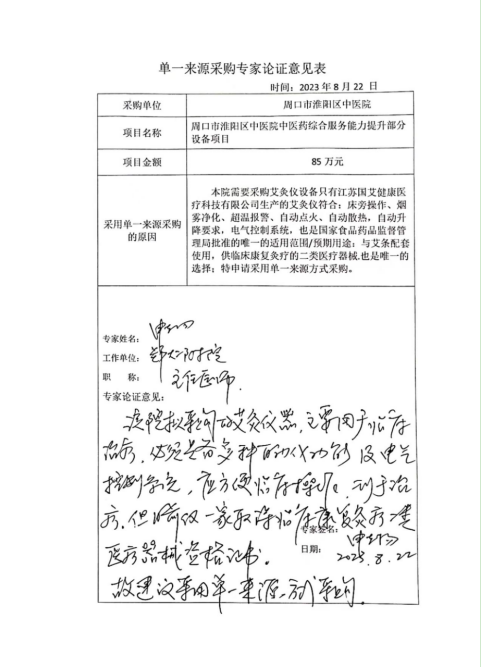 单一来源采购专家论证意见表
时间：2023 年 8 月 22 日
采购单位
周口市淮阳区中医院
项目名称
周口市淮阳区中医院中医药综合服务能力提升部分
设备项目
项目金额
85 万元
采用单一来源采购
的原因
本院需要采购艾灸仪设备只有江苏国艾健康医
疗科技有限公司生产的艾灸仪符合：床旁操作、烟
雾净化、超温报警、自动点火、自动散热，自动升
降要求，电气控制系统，也是国家食品药品监督管
理局批准的唯一的适用范围/预期用途；与艾条配套
使用，供临床康复灸疗的二类医疗器械.也是唯一的
选择；特申请采用单一来源方式采购。
专家姓名：
工作单位：
职 称： 主任医师
专家论证意见：
该院拟采购的艾灸仪器，主要用于临床
治疗，必须具备多种的仪功能及电气
控制系统，应方便临床操作，利于治
疗，但目前仅一家取得临床康复灸疗二类
医疗器械资格证书。
专家签名：
日期： 2023.8.22
故建议采用单一来源方式采购